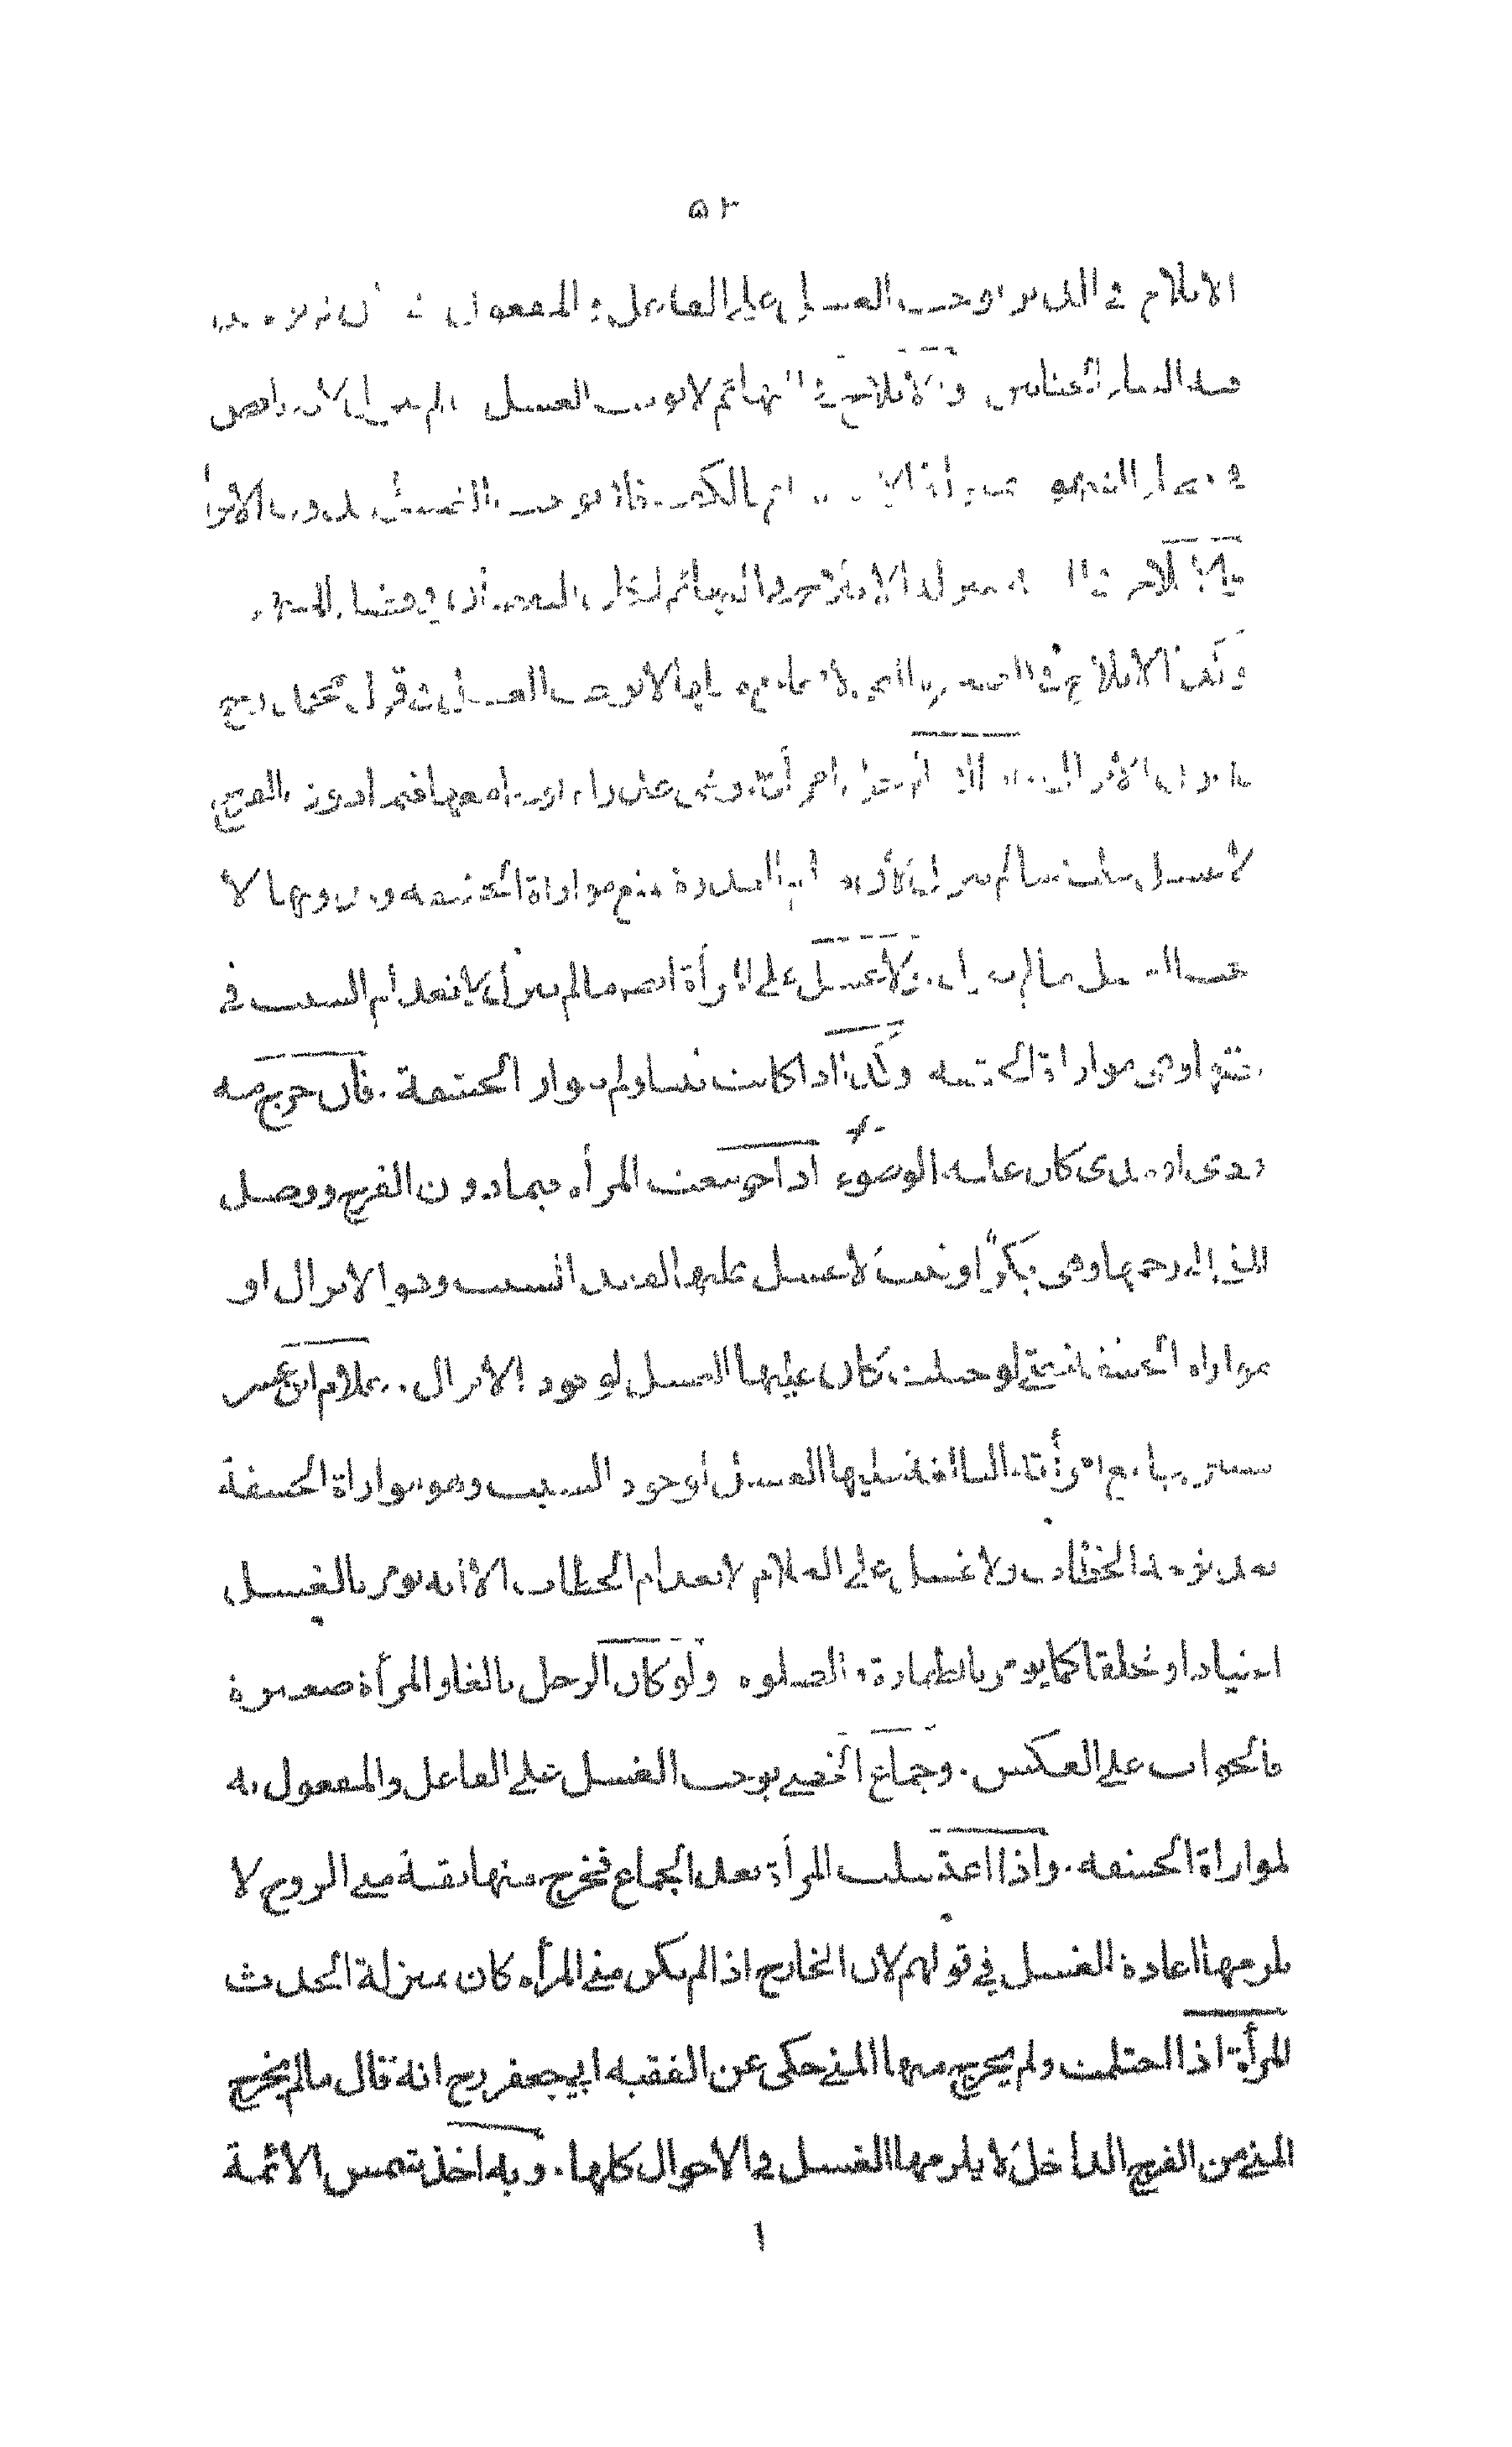 ۵۲
الايلاج في الدبر يوجب الغسل على الفاعل والمفعول
والايلاج في البهائم لا يوجب الغسل ما لم ينزل لانه ناقص
في قضاء الشهوة بمنزلة بالكف فلا يوجب الغسل بدون الانزا
الايلاج في البهائم لمكان النقصان في قضاء الشهوة
وكذا الايلاج في الصغيرة التي لا يجامع مثلها لا يوجب الغسل في قول محمد رح
بدون الانزال امرأته وهي عذراء او جامعها فيما دون الفرج
لا غسل عليه ما لم ينزل لان العذرة تمنع مواراة الحشفة وبدونها لا
يجب الغسل ما لم ينزل. ولا غسل على المرأة ايضا ما لم ينزل لانعدام السبب في
حقها وهي مواراة الحشفة وكذا اذا كانت ثيبا ولم يوار الحشفة. فان خرج منه
ودى او مذى كان عليه الوضوء اذا جومعت المرأه فيما دون الفرج ووصل
المنى الى رحمها وهى بكرًا وثيب لا غسل عليها لفقد السبب وهو الانزال او
مواراه الحشفة حتى لو حبلت كان عليها الغسل لوجود الانزال. غلام ابن عشر
سنين جامع امرأته البالغة عليها الغسل لوجود السبب وهو مواراة الحشفة
بعد توجه الخطاب ولا غسل على الغلام لانعدام الخطاب الا انه يؤمر بالغسل
اعتيادا وتخلقا كما يؤمر بالطهارة والصلوه ولو كان الرجل بالغا والمرأة صغيرة
فالجواب على العكس. وجماع الخصي يوجب الغسل على الفاعل والمفعول به
لمواراة الحشفه. واذا اغتسلت المرأة بعد الجماع فخرج منها بقية منى الزوج لا
يلزمها اعادة الغسل في قولهم لان الخارج اذا لم يكن منى المرأه كان بمنزلة الحدث
المرأة اذا احتلمت ولم يخرج منها المنى حكى عن الفقيه ابي جعفر رح انه قال ما لم يخرج
المنى من الفرج الداخل لا يلزمها الغسل في الاحوال كلها. وبه اخذ شمس الائمة
ا